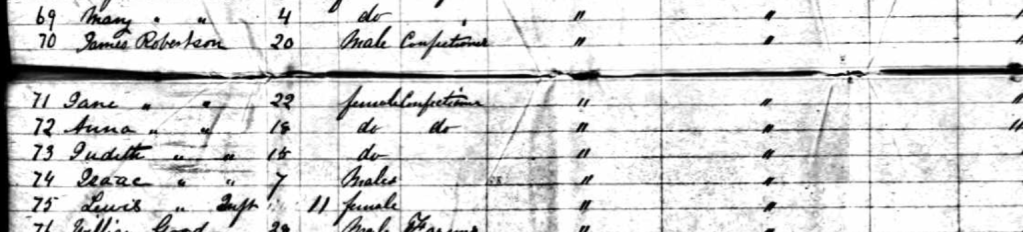 69 Mary " " 4 do " "
70 James Robertson 20 Male Confectioner " "
71 Jane " " 22 female Confectioner " "
72 Anna " " 18 do do " " "
73 Judith " " 15 do " "
74 Isaac " " 7 Males " "
75 Lewis " Inft 11 female " "
76 Good 28 Male Farmer